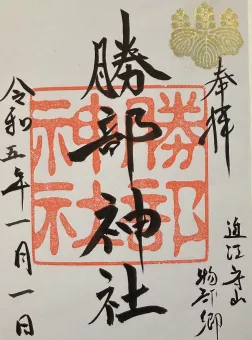 奉拝
勝部神社
勝部
神社
近江守山
物部郷
令和五年一月一日